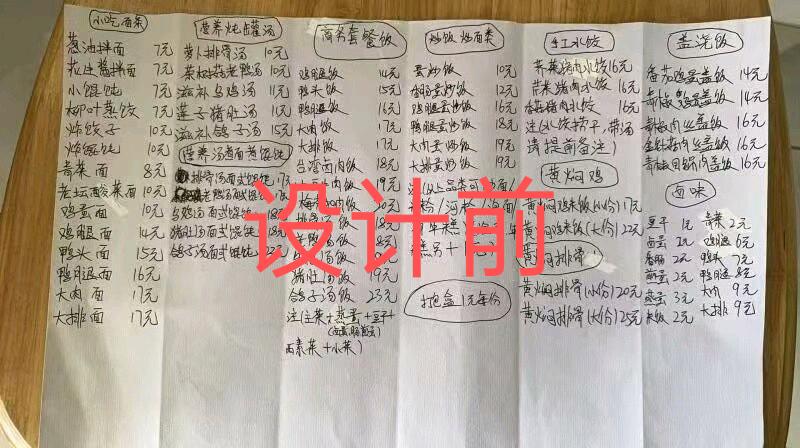 小吃面菜
葱油拌面 7元
花生酱拌面 7元
小馄饨 7元
柳叶蒸饺 7元
炸饺子 10元
炸馄饨 10元
青菜面 8元
老坛酸菜面 10元
鸡蛋面 10元
鸡腿面 14元
鸭头面 15元
鸭腿面 16元
大肉面 17元
大排面 17元
营养炖罐汤
萝卜排骨汤 10元
茶树菇老鸭汤 10元
滋补乌鸡汤 11元
莲子猪肚汤 11元
滋补鸽子汤 15元
营养汤煮面煮馄饨
排骨汤面或馄饨 17元
老鸭汤面或馄饨
乌鸡汤面或馄饨
猪肚汤面或馄饨
鸽子汤面或馄饨
商务套餐饭
鸡腿饭 14元
鸭头饭 15元
鸭腿饭 16元
大肉饭 17元
大排饭 17元
台湾卤肉饭 18元
19元
梅菜
排骨汤饭
猪肚汤饭 19元
鸽子汤饭 23元
注(注菜+蒸蛋+豆干
两素菜+小菜)
炒饭 炒面类
蛋炒饭 10元
香肠蛋炒饭 12元
鸡腿蛋炒饭 16元
鸭腿蛋炒饭 18元
大肉蛋炒饭 19元
大排蛋炒饭 19元
打包盒1元每份
手工水饺
荠菜猪肉水饺 16元
芹菜猪肉水饺 16元
香菇猪肉水饺 16元
注(水饺捞干,带汤
请提前备注)
黄焖鸡
黄焖鸡米饭(小份) 17元
黄焖鸡米饭(大份) 22元
黄焖排骨
黄焖排骨(小份) 20元
黄焖排骨(大份) 25元
盖浇饭
番茄鸡蛋盖饭 14元
青椒鸡蛋盖饭 14元
青椒肉丝盖饭 16元
金针菇肉丝盖饭 16元
青椒回锅肉盖饭 16元
卤味
豆干 1元 青菜 2元
卤蛋 2元 鸡腿 6元
香肠 2元 鸭头 7元
煎蛋 2元 鸭腿 8元
蒸蛋 3元 大肉 9元
米饭 2元 大排 9元
设计前